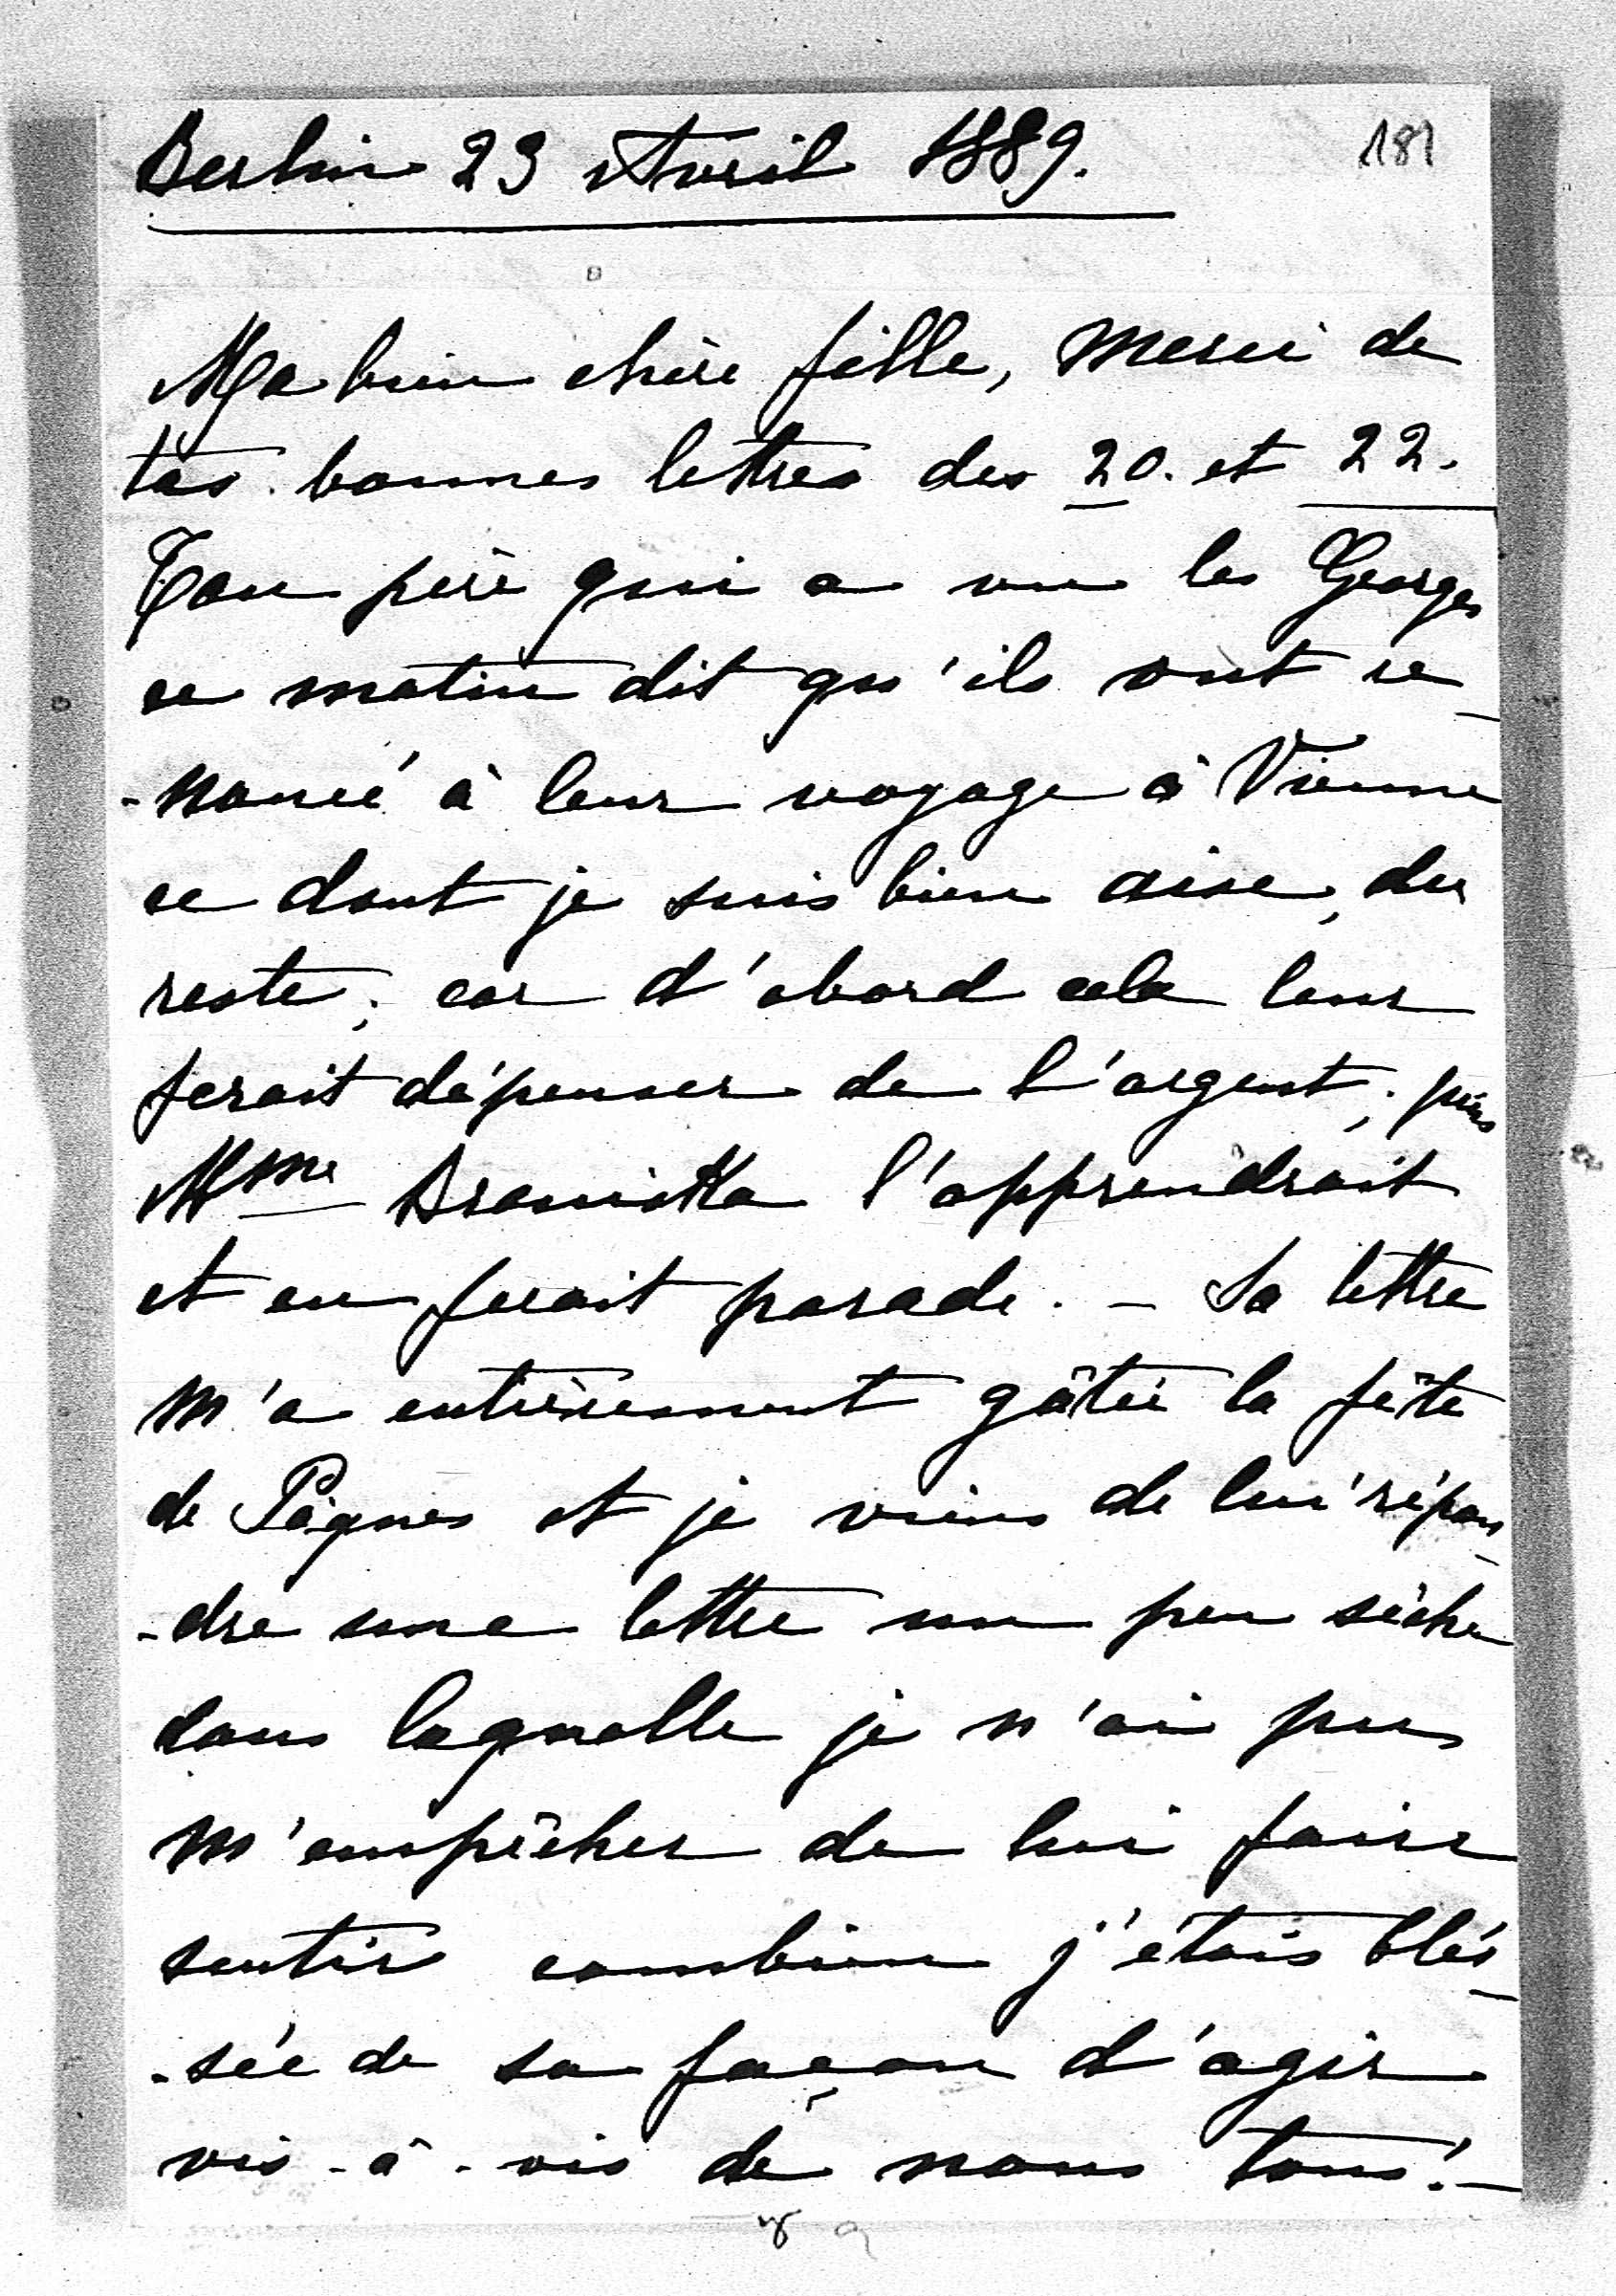 Berlin 23 Avril 1889.
181
Ma bien chère fille, merci de
tes bonnes lettres des 20. et 22.
Ton père qui a vu les Georges
ce matin dit qu'ils ont re-
-noncé à leur voyage à Vienne
ce dont je suis bien aise, du
reste; car d'abord cela leur
ferait dépenser de l'argent; puis
Mme l'apprendrait
et en ferait parade. - Sa lettre
m'a entièrement gâtée la fête
de Pâques et je viens de lui répon-
-dre une lettre un peu sèche
dans laquelle je n'ai pu
m'empêcher de lui faire
sentir combien j'étais bles-
-sée de sa façon d'agir
vis-à-vis de nous tous! -